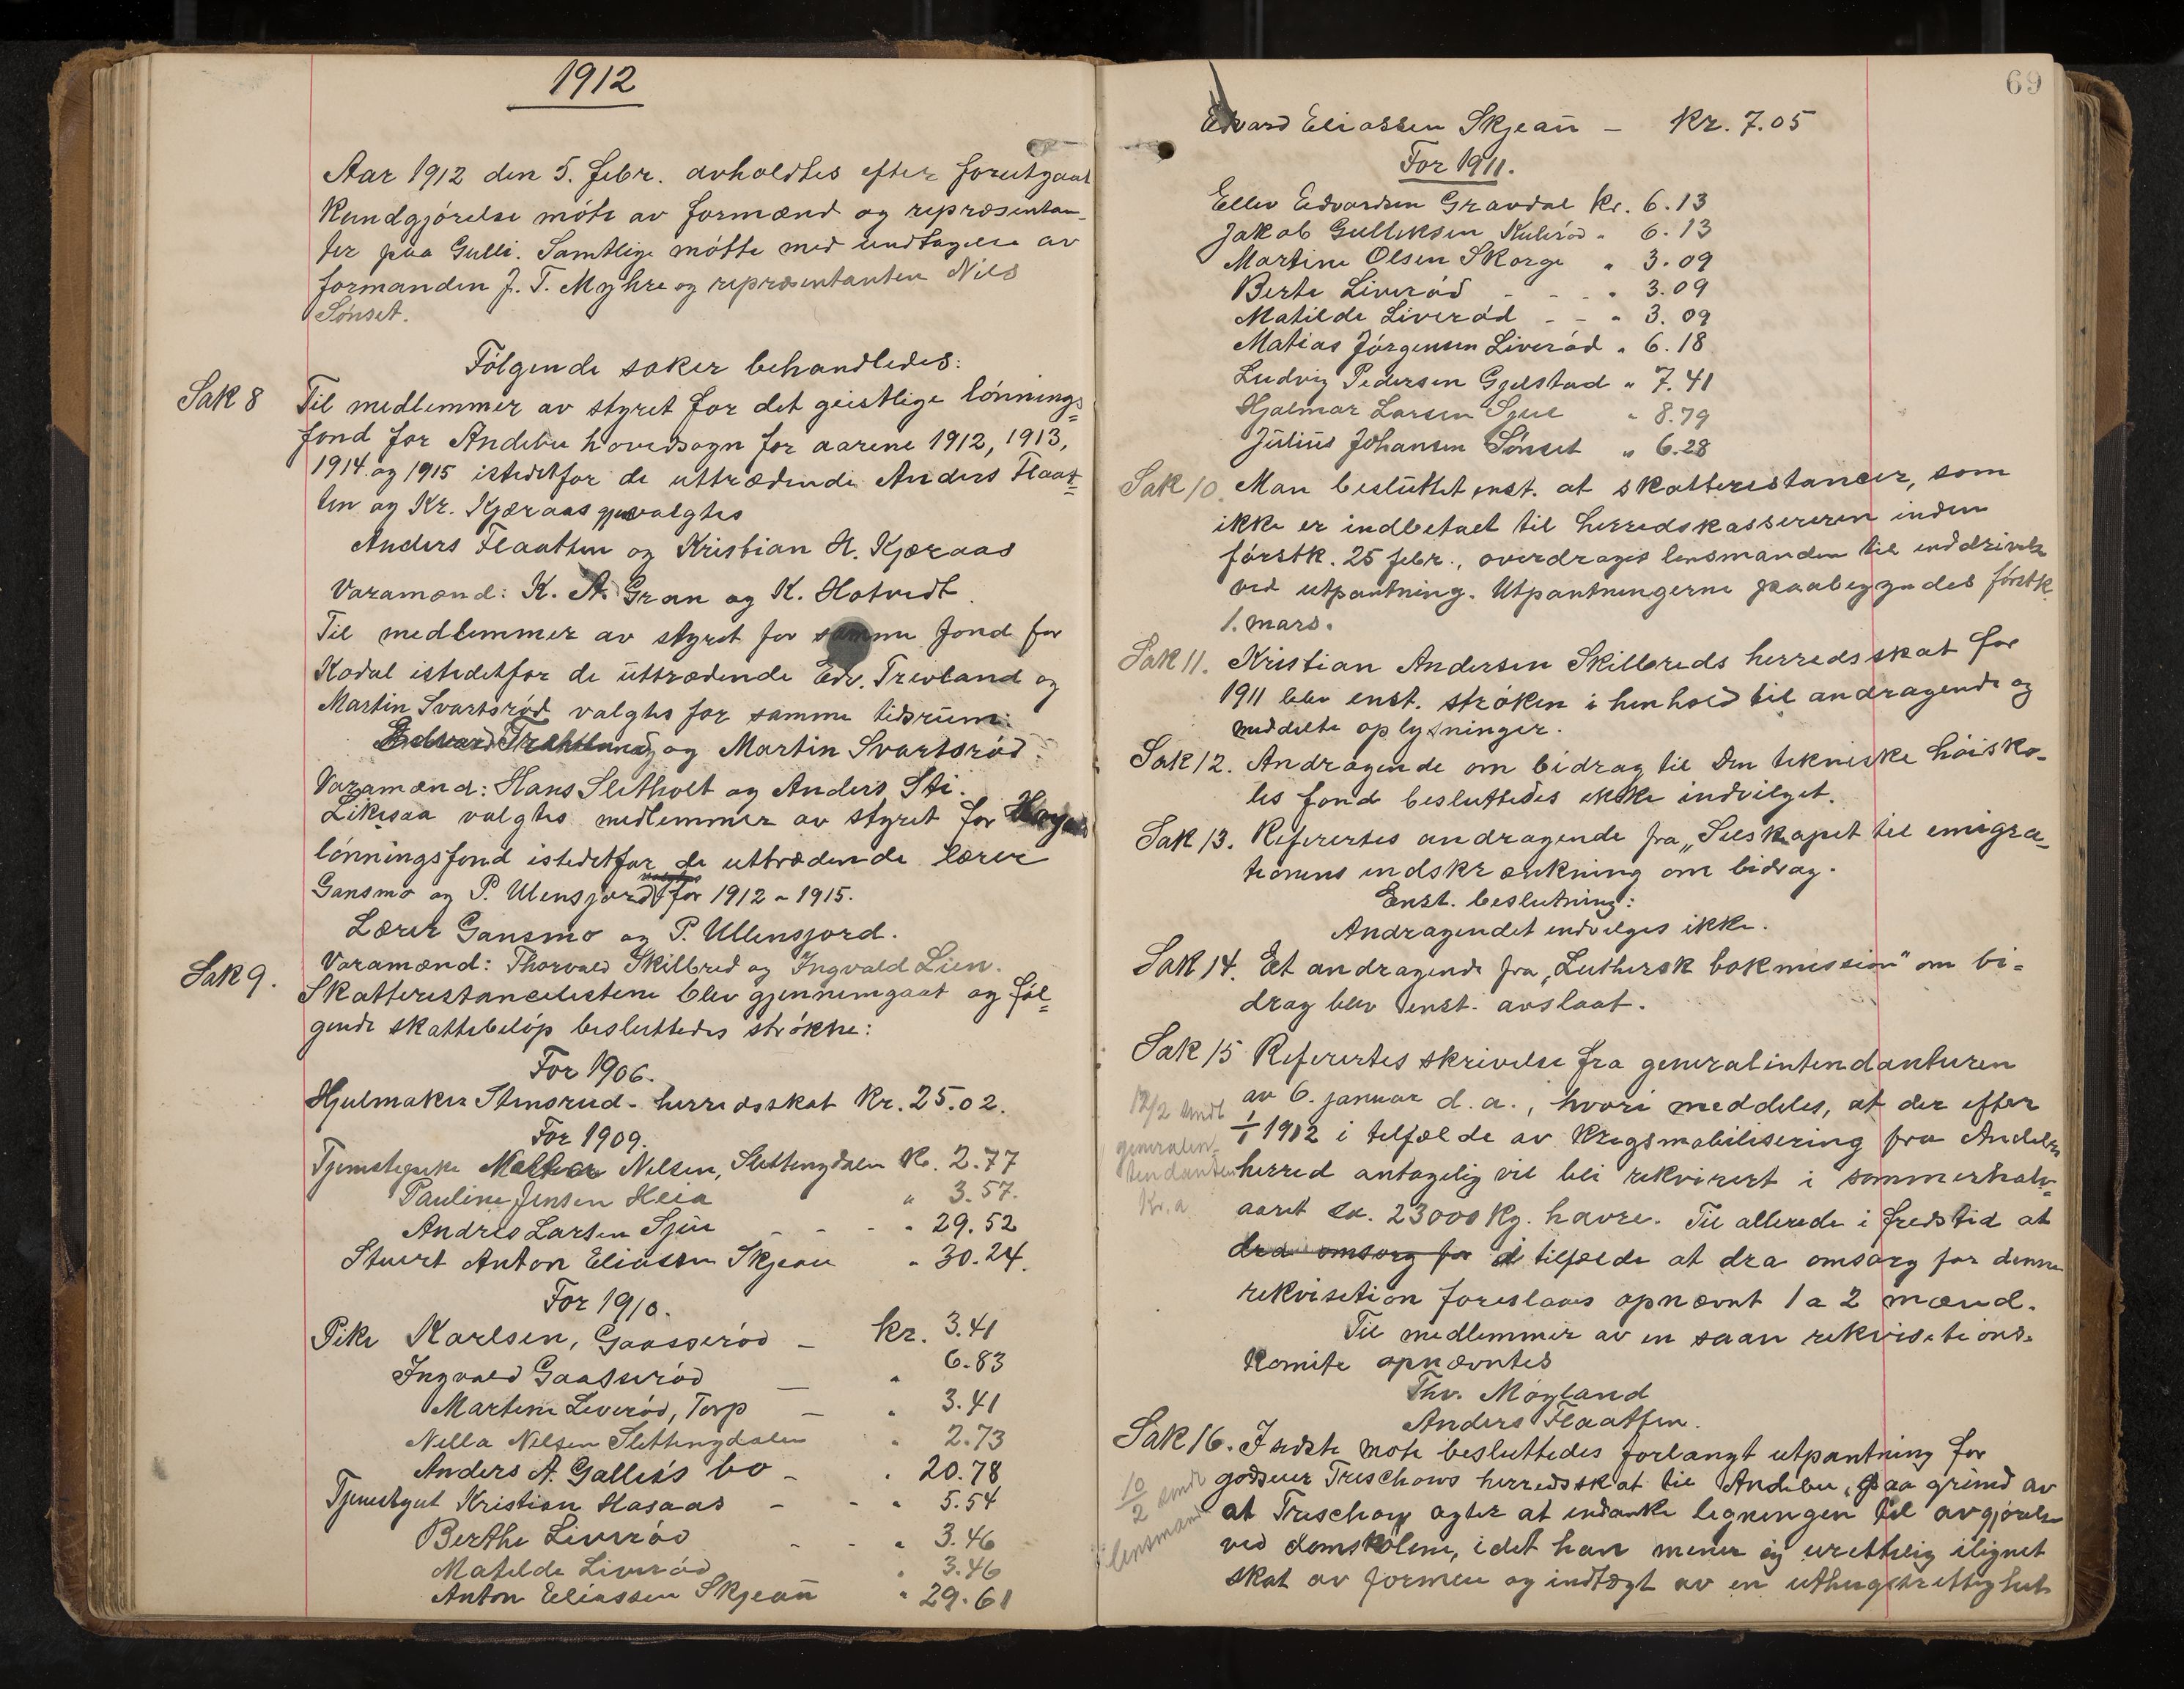 1912
Aar 1912 den 5. febr. avholdtes efter forutgaat
kundgjörelse möte av formænd og repræsentan-
ter paa Gulli. Samtlige mötte med undtagelse av
formanden J. T. Myhre og repræsentanten Nils
Sönset.
Fölgende saker behandledes:
Sak 8 Til medlemmer av styret for det geistlige lönnings=
fond for Andebu hovedsogn for aarene 1912, 1913,
1914 og 1915 istedetfor de uttrædende Anders Flaat=
ten og Kr. Kjæraas valgtes
Anders Flaatten og Kristian H. Kjæraas
Varamænd: K. A. Gran og K. Hotvedt.
Til medlemmer av styret for samme fond for
Kodal istedetfor de uttrædende Edv. Trevland og
Martin Svartsröd valgtes for samme tidsrum:
og Martin Svartsröd
Varamænd: Hans Sletholt og Anders Sti.
Likesaa valgtes medlemmer av styret for
lönningsfond istedetfor de uttrædende lærer
Gansmo og P. Ulensjord for 1912 - 1915.
Lærer Gansmo og P. Ullensjord.
Varamænd: Thorvald Skilbred og Ingvald Lien.
Sak 9. Skatterestancelistene blev gjennemgaat og föl=
gende skattebelöp besluttedes strökne:
For 1906.
Hjulmaker Stensrud - herredsskat Kr. 25.02.
For 1909.
Tjenestepike Nilsen, Slettingdalen Kr. 2.77
Pauline Jensen Heia " 3.57.
Andres Larsen Sjue - - - " 29.52
Stuert Anton Eliassen Skjeau " 30.24.
For 1910.
Pike Karlsen, Gaasseröd - Kr. 3.41
Ingvald Gaasseröd - " 6.83
Martine Liveröd, Torp - " 3.41
Nella Nilsen Slettingdalen " 2.73
Anders A. Galleis's bo - " 20.78
Tjenestegut Kristian Hasaas - - " 5.54
Berthe Liveröd - - " 3.46
Matilde Liveröd " 3.46
Anton Eliassen Skjeau " 29.61
69
Edvard Eliassen Skjeau - Kr. 7.05
For 1911.
Ellev Edvardsen Gravdal Kr. 6.13
Jakob Gulliksen Kuleröd " 6.13
Martine Olsen Skorge " 3.09
Berte Liveröd - - - " 3.09
Matilde Liveröd - - " 3.09
Matias Jörgensen Liveröd " 6.18
Ludvig Pedersen Gjelstad " 7.41
Hjalmar Larsen Sjue " 8.79
Julius Johansen Sönset " 6.28
Sak 10. Man besluttet enst. at skatterestancer, som
ikke er indbetaet til herredskassereren inden
förstk. 25 febr., overdrages lensmanden til inddrivelse
ved utpantning. Utpantningerne paabegyndes förstk.
1. mars.
Sak 11. Kristian Andersen Skilbreds herredsskat for
1911 blev enst. ströken i henhold til andragende og
meddelte oplysninger.
Sak 12. Andragende om bidrag til Den tekniske höisko-
les fond besluttedes ikke indvilget.
Sak 13. Refertes andragende fra „Selskapet til emigra-
tionens indskrænkning om bidrag.
Enst. beslutning:
Andragendet indvilges ikke.
Sak 14. Et andragende fra „Luthersk bokmission" om bi=
drag blev enst. avslaat.
Sak 15 Refertes skrivelse fra generalintendanturen
av 6. januar d. a., hvori meddeles, at der efter
1/1 1912 i tilfælde av krigsmobilisering fra Andebu
herred antagelig vil bli rekvirert i sommerhalv-
aaret ca. 23000 Kg. havre. Til allerede i fredstid at
dra omsorg for i tilfælde at dra omsorg for denne
rekvisition foreslaaes opnævnt 1 a 2 mænd.
12/2 sendt
generalin-
tendanten
Kr.a
Til medlemmer av en saan rekvisitions-
komite opnævntes
Thv. Möyland
Anders Flaatten.
Sak 16. I sidste möte besluttedes forlangt utpantning for
godseier Treschows herredsskat til Andebu, paa grund av
at Treschow agter at indanke ligningen til avgjörelse
ved domstolene, idet han mener sig urettelig ilignet
skat av formue og indtægt av en uthugstrettighet
10/2 sendt
lensmand